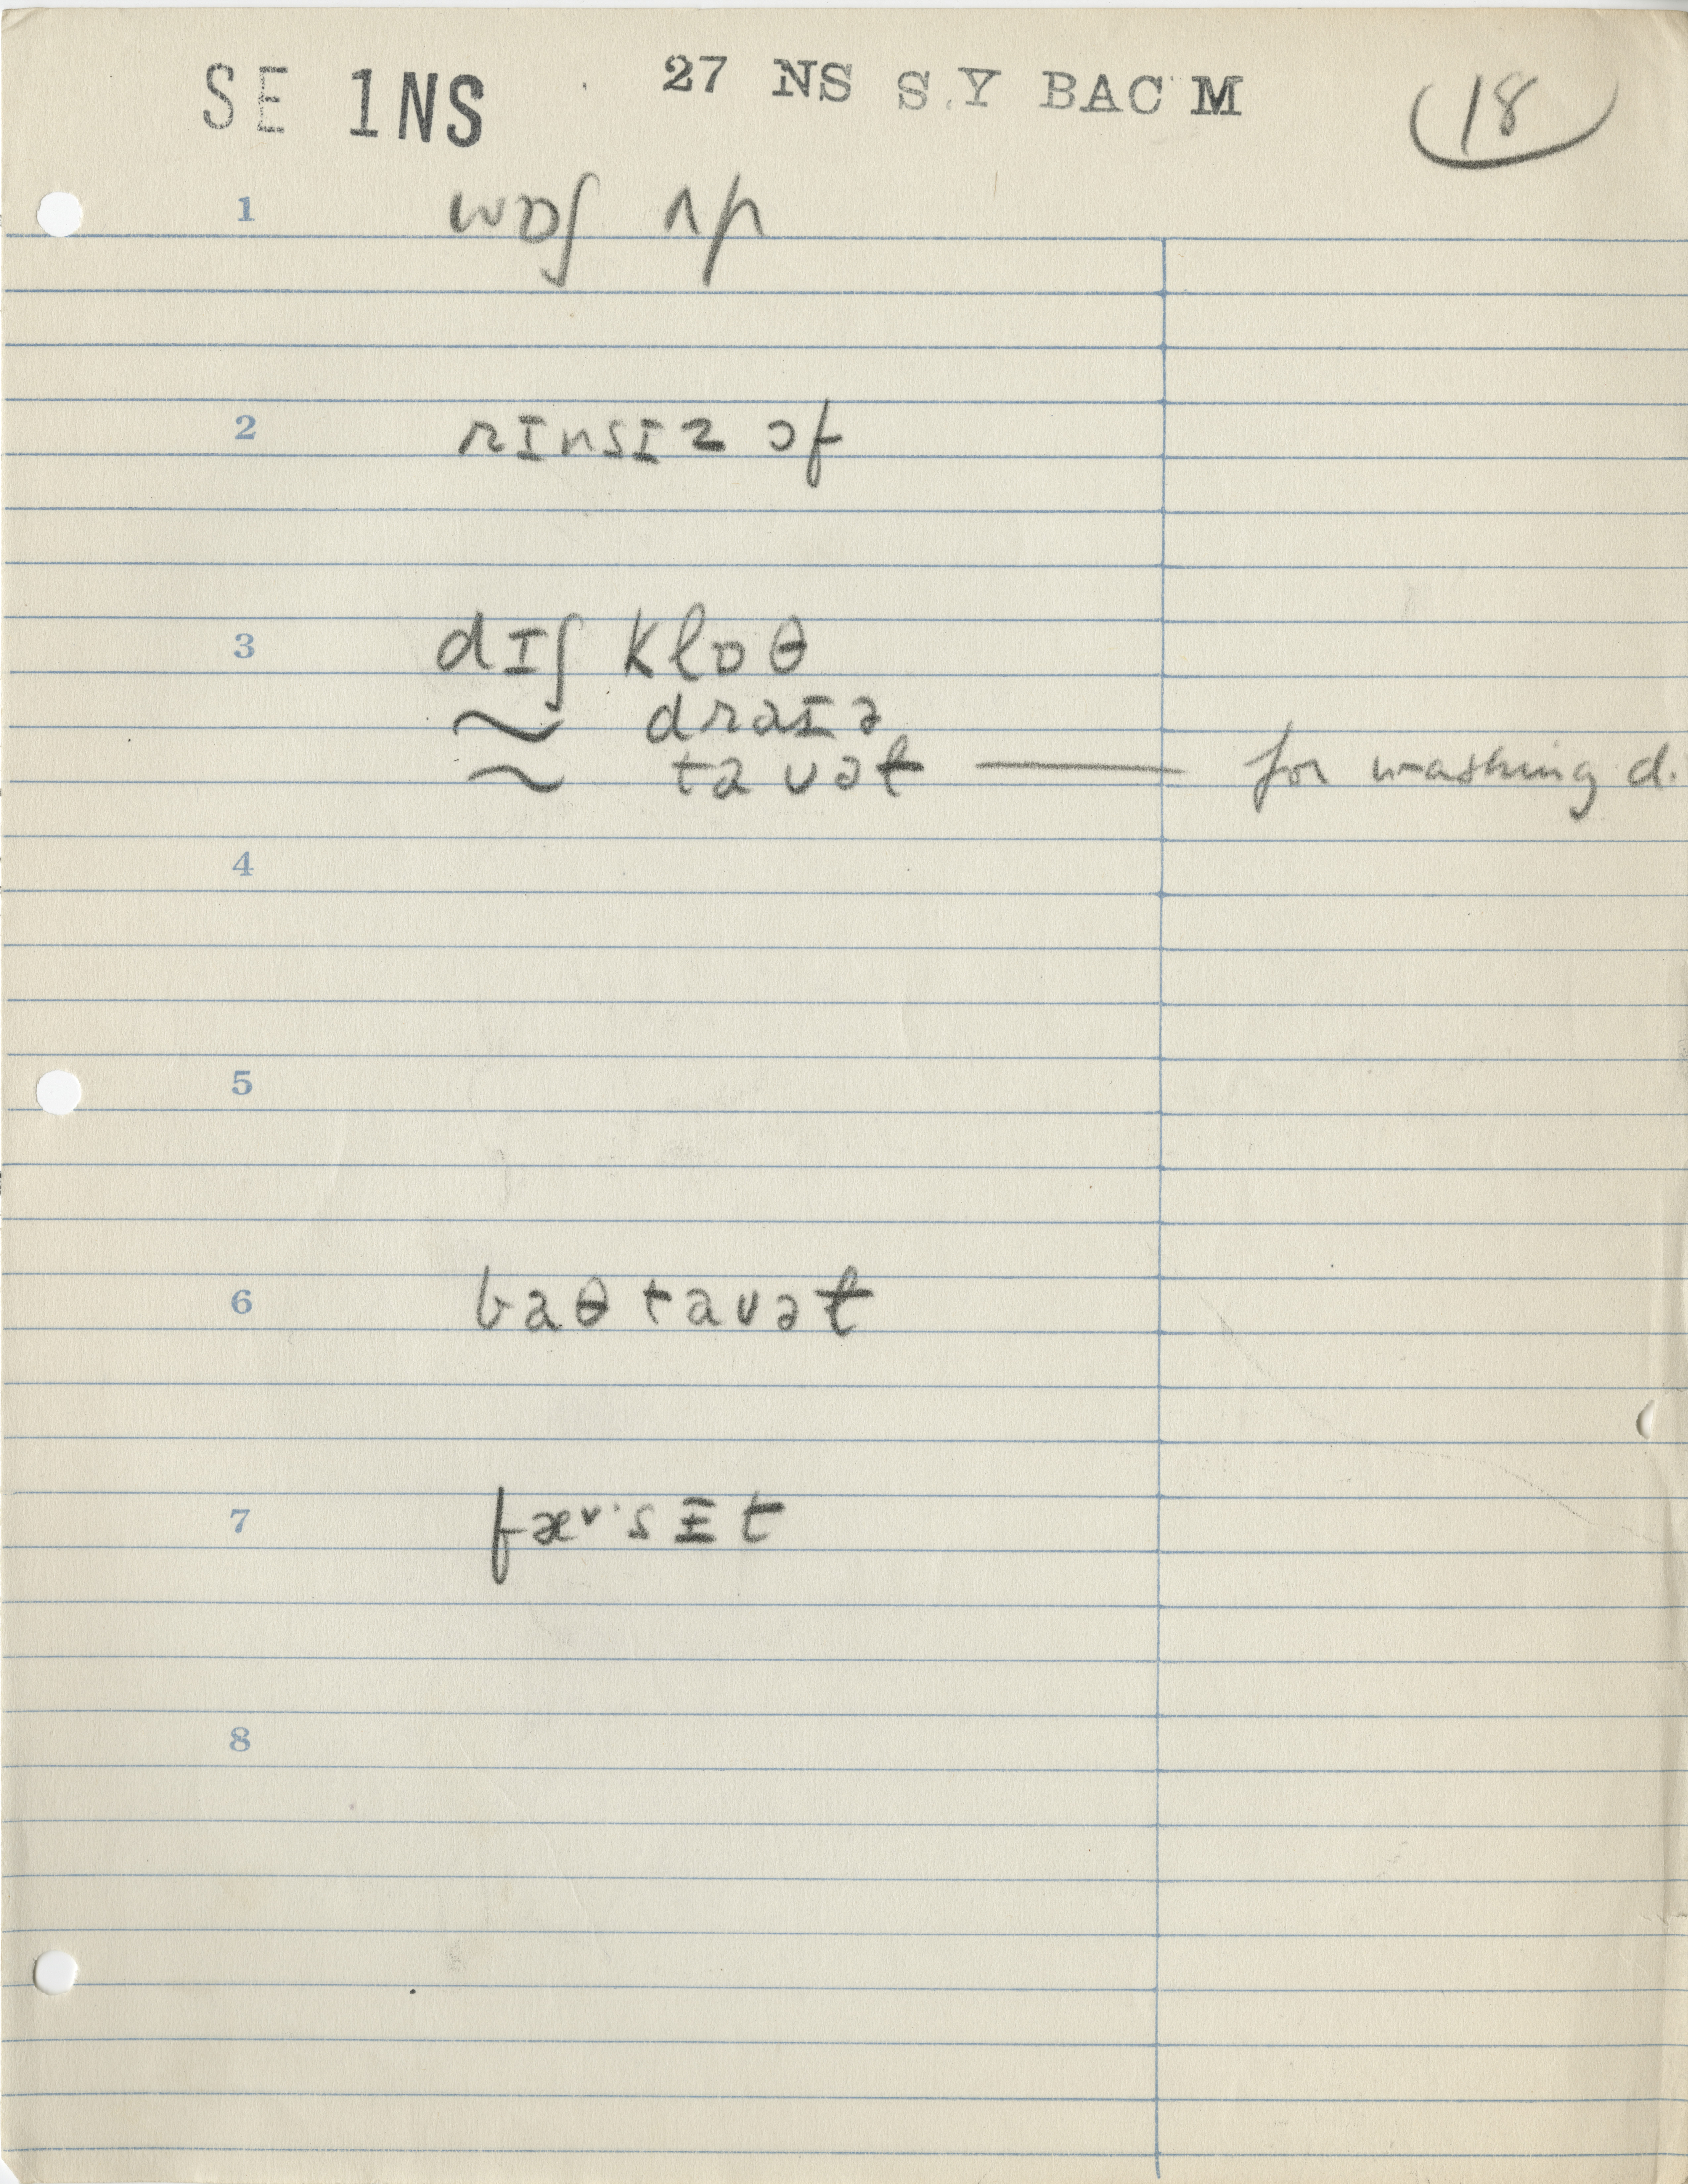 SE 1NS 27 NS S.Y BAC M 18
1 wɒʃ ʌp
2 rɪnsɪz ɔf
3 dɪʃ klɒθ
~ draɪə
~ tavəɫ — for washing d.
4
5
6 baθ tavəɫ
7 fæᵛsɪt
8